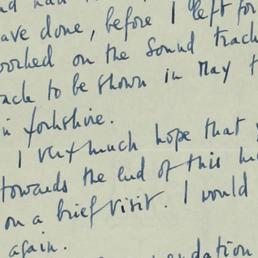 had
have done, before I left for
worked on the sound track
to be shown in May
in Yorkshire.
I very much hope that
towards the end of this
on a brief visit. I would
again.